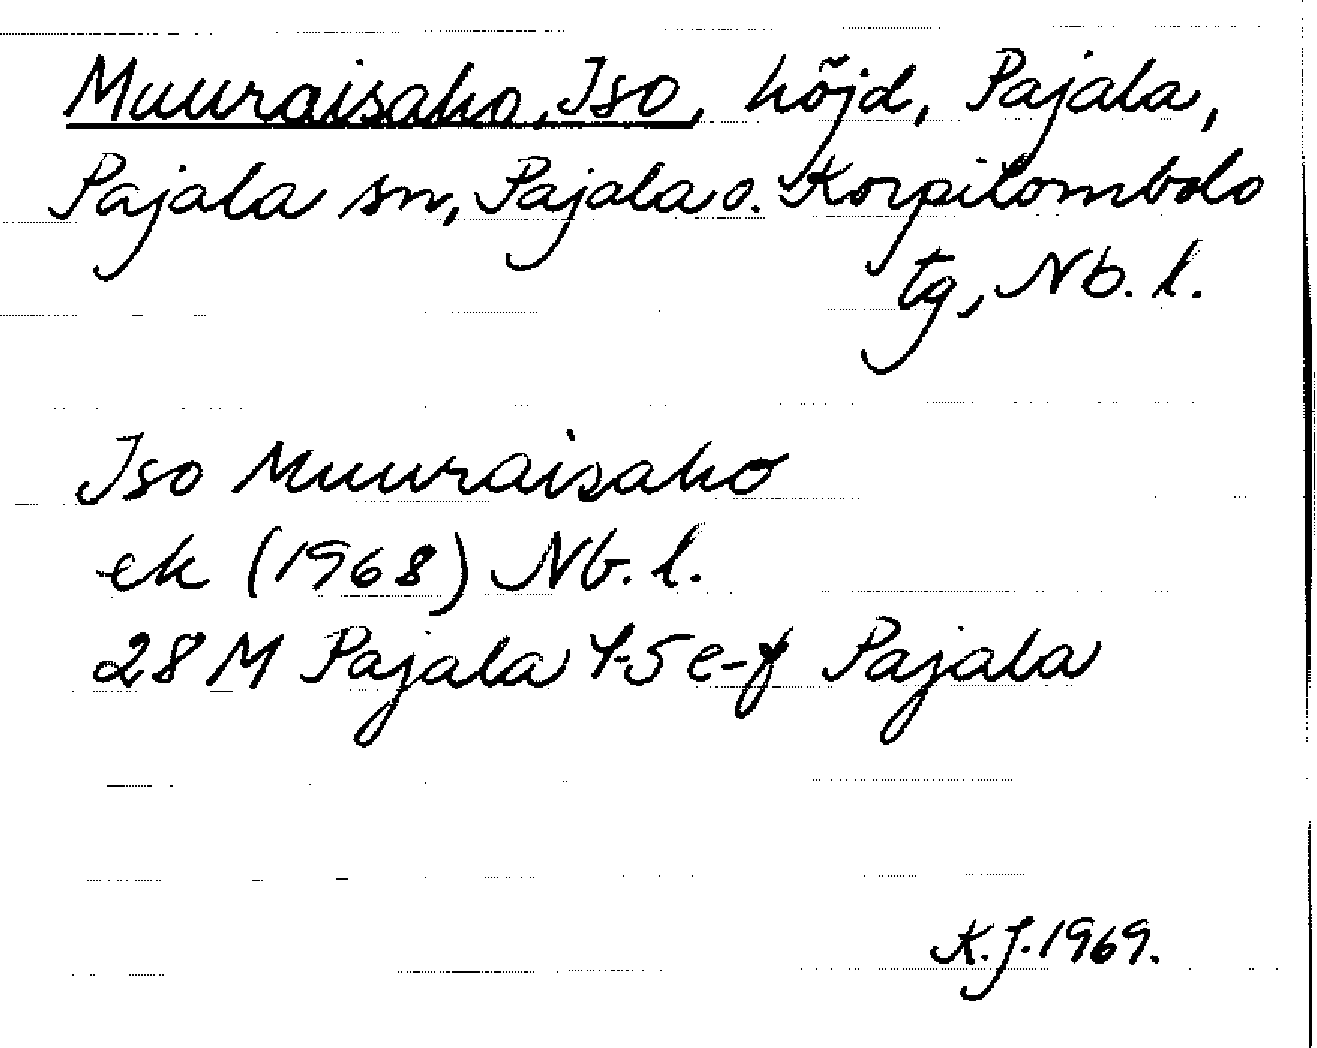 Muuraisaho, Iso, höjd, Pajala,
Pajala sn, Pajala o. Korpilombolo
tg, Nb. l.
Iso Muuraisaho
ek (1968) Nb. l.
28 M Pajala 4-5 e-f Pajala
K.J. 1969.